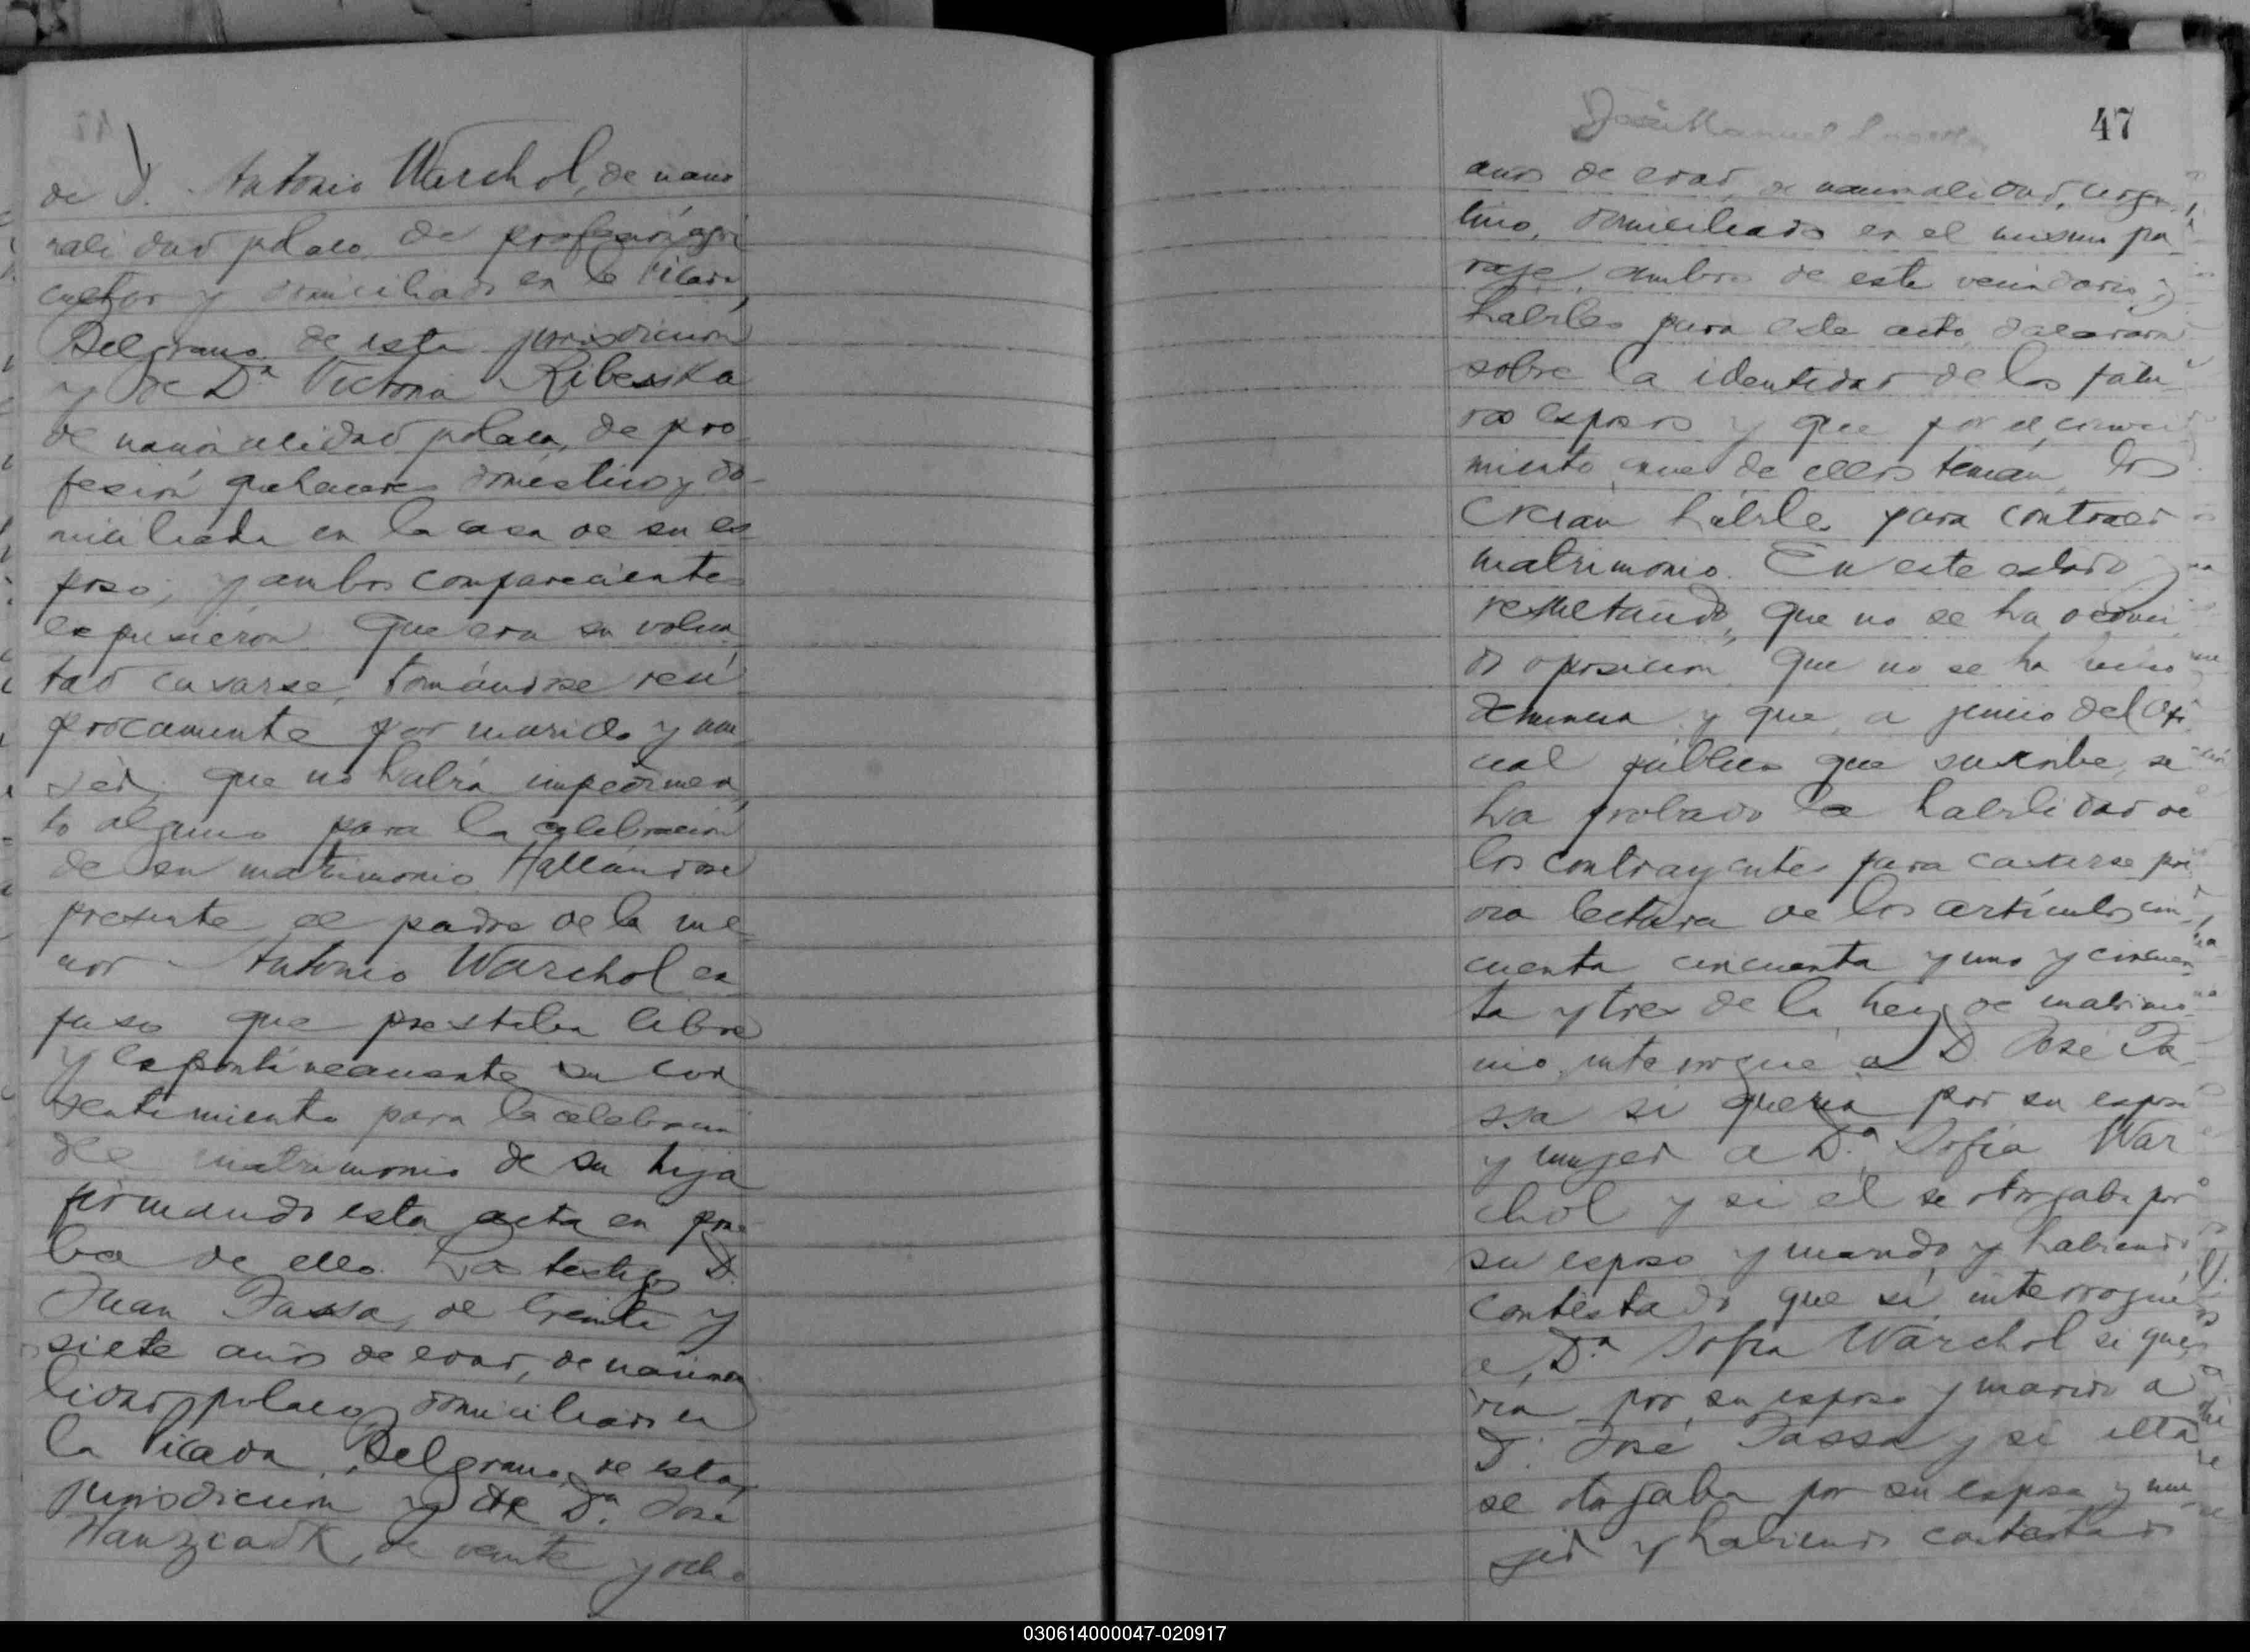 de D. Antonio Warchol, de nacio
nalidad polaco, de profesión agri
cultor y domiciliado en la Picada
Belgrano de esta jurisdiccion
y de Dª Victoria Ribesska
de nacionalidad polaca, de pro
fesión quehaceres domésticos y do-
miciliada en la casa de su es
poso; y ambos comparecientes
expusieron que era su volun
tad casarse, tomándose recí
procamente por marido y mu
jer, que no había impedimen
to alguno para la celebración
de su matrimonio. Hallándose
presente el padre de la me
nor Antonio Warchol ex
puso que prestaba libre
y espontáneamente su con
sentimiento para la celebracion
del matrimonio de su hija
firmando esta acta en prue
ba de ello. Los testigos D.
Juan Tassa, de treinta y
siete años de edad, de naciona
lidad polaco, domiciliado en
la Picada Belgrano de esta
jurisdiccion y de Dª. José
Hanzcadk, de veinte y ocho
47
José Manuel
años de edad, de nacionalidad, argen
tino, domiciliado en el mismo pa
raje, ambos de este vecindario y
hábiles para este acto, declararon
sobre la identidad de los futu
ros esposos y que por el conoci
miento que de ellos tenían, los
creían hábiles para contraer
matrimonio. En este estado y
resultando, que no se ha deduci
do oposicion, que no se ha hecho
denuncia y que, a juicio del Ofi
cial público que suscribe, se
ha probado la habilidad de
los contrayentes para casarse pre
via lectura de los artículos cin
cuenta cincuenta y uno y cincuen
ta y tres de la Ley de matrimo
nio, interrogué a D. José Ta
ssa si quería por su esposa
y mujer a Dª. Sofia War
chol y si el se otorgaba por
su esposo y marido y habiendo
contestado que sí, interrogué
a Dª Sofia Warchol si que
ría por su esposo y marido a
D. José Tassa y si ella
se otorgaba por su esposa y mu
jer y habiendo contestado
030614000047-020917